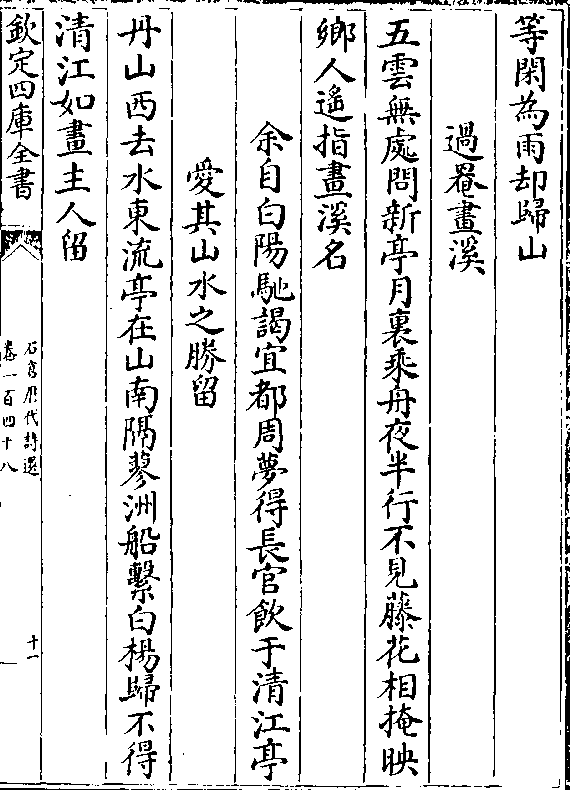 等閑為雨却歸山
過罨畫溪
五雲無處問新亭月裏乘舟夜半行不見藤花相掩映
鄉人遙指畫溪名
余自白陽馳謁宜都周夢得長官飲于清江亭
愛其山水之勝留
丹山西去水東流亭在山南隔蓼洲船繫白楊歸不得
清江如畫主人留
欽定四庫全書
石倉歷代詩選
卷一百四十八
十一